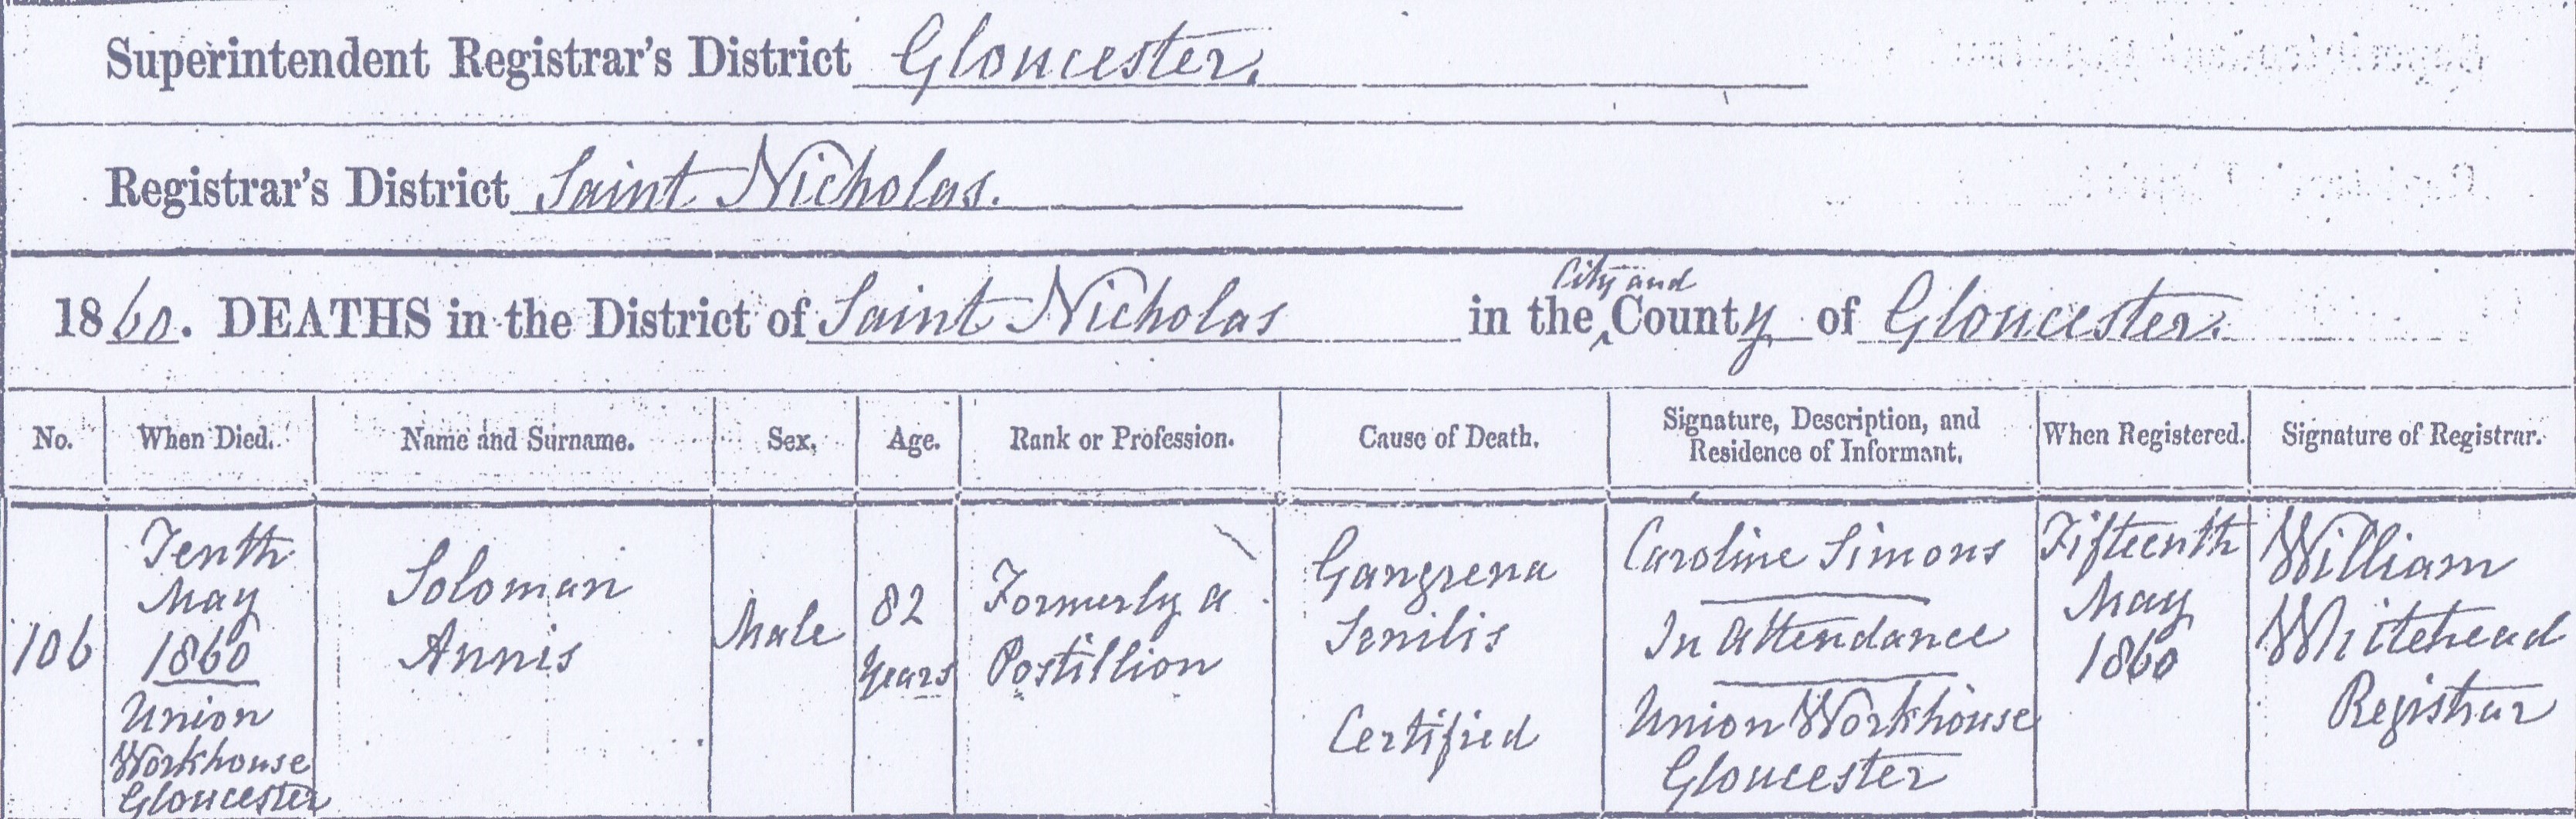 Superintendent Registrar's District Gloucester.
Registrar's District Saint Nicholas.
1860. DEATHS in the District of Saint Nicholas in the City and County of Gloucester.
No. When Died. Name and Surname. Sex. Age. Rank or Profession. Cause of Death. Signature, Description, and Residence of Informant. When Registered. Signature of Registrar.
106
Tenth
May
1860
Union
Workhouse
Gloucester
Soloman
Annis
Male
82
Years
Formerly a
Postillion
Gangrena
Senilis
Certified
Caroline Simons
In Attendance
Union Workhouse
Gloucester
Fifteenth
May
1860
William
Whitehead
Registrar